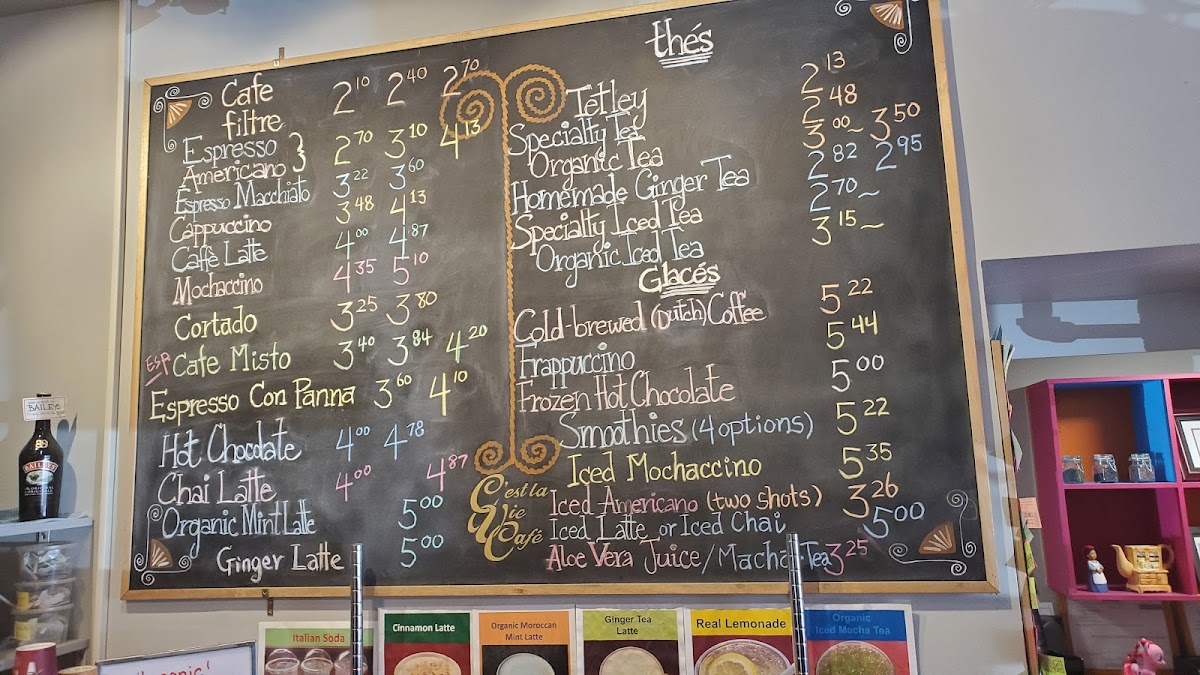 Cafe filtre 2.10 2.40 2.70
Espresso
Americano } 2.70 3.10 4.13
Espresso Macchiato 3.22 3.60
Cappuccino 3.48 4.13
Caffè Latte 4.00 4.87
Mochaccino 4.35 5.10
Cortado 3.25 3.80
ESP Cafe Misto 3.40 3.84 4.20
Espresso Con Panna 3.60 4.10
Hot Chocolate 4.00 4.78
Chai Latte 4.00 4.87
Organic Mint Latte 5.00
Ginger Latte 5.00
thés
Tetley 2.13
Specialty Tea 2.48
Organic Tea 3.00~ 3.50
Homemade Ginger Tea 2.82 2.95
Specialty Iced Tea 2.70~
Organic Iced Tea 3.15~
Glacés
Cold-brewed (Dutch) Coffee 5.22
Frappuccino 5.44
Frozen Hot Chocolate 5.00
Smoothies (4 options) 5.22
Iced Mochaccino 5.35
Iced Americano (two shots) 3.26
Iced Latte or Iced Chai 5.00
Aloe Vera Juice/Macha Tea 3.25
C'est la
Vie
Café
BAILEYS
BAILEYS
Italian Soda
Cinnamon Latte
Organic Moroccan
Mint Latte
Ginger Tea
Latte
Real Lemonade
Organic
Iced Mocha Tea